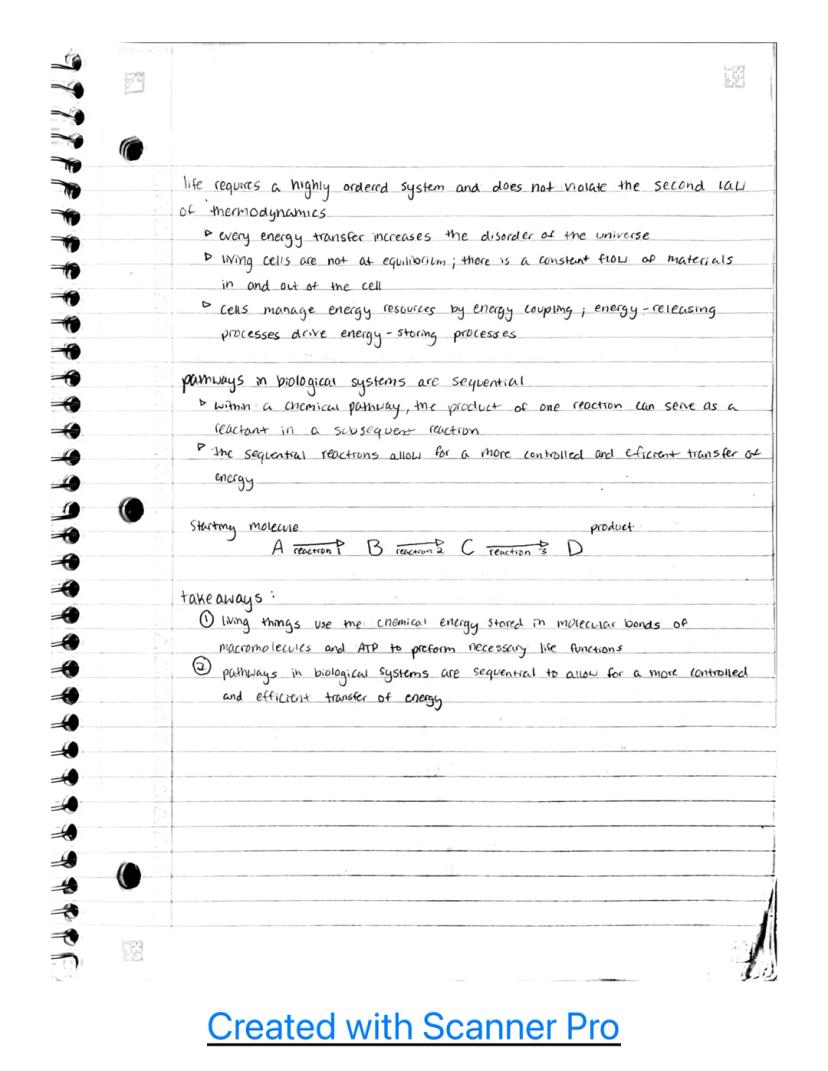 life requires a highly ordered system and does not violate the second law
of thermodynamics
▹ every energy transfer increases the disorder of the universe
▹ living cells are not at equilibrium; there is a constant flow of materials
in and out of the cell
▹ cells manage energy resources by energy coupling; energy-releasing
processes drive energy-storing processes
pathways in biological systems are sequential
▹ within a chemical pathway, the product of one reaction can serve as a
reactant in a subsequent reaction
▹ the sequential reactions allow for a more controlled and eficient transfer of
energy
Starting molecule product
A reaction 1 B reaction 2 C reaction 3 D
takeaways:
① living things use the chemical energy stored in molecular bonds of
macromolecules and ATP to preform necessary life functions
② pathways in biological systems are sequential to allow for a more controlled
and efficient transfer of energy
Created with Scanner Pro